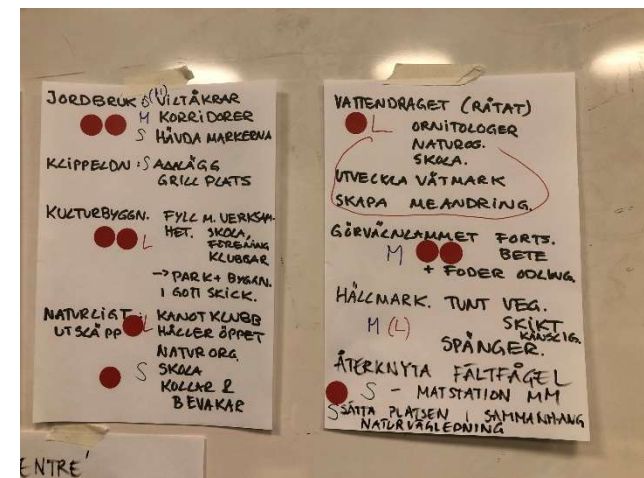 JORDBRUK S(M) VILTÅKRAR
M KORRIDORER
S HÄVDA MARKERNA
KLIPPELDN: S ANLÄGG
GRILL PLATS
KULTURBYGGN. FYLL M. VERKSAM-
HET. SKOLA,
L FÖRENING
KLUBBAR
→ PARK + BYGGN.
I GOTT SKICK.
NATURLIGT KANOT KLUBB
UTSLÄPP L HÅLLER ÖPPET
NATUR ORG.
S SKOLA
KOLLAR &
BEVAKAR
VATTENDRAGET (RÄTAT)
L ORNITOLOGER
NATURORG.
SKOLA.
UTVECKLA VÅTMARK
SKAPA MEANDRING.
GÖRVÄLNLAMMET FORTS.
M BETE
+ FODER ODLING.
HÄLLMARK. TUNT VEG.
M (L) SKIKT
KÄNSLIG.
SPÄNGER.
ÅTERKNYTA FÄLTFÅGEL
S - MATSTATION MM
S SÄTTA PLATSEN I SAMMANHANG
NATURVÄGLEDNING
ENTRÉ